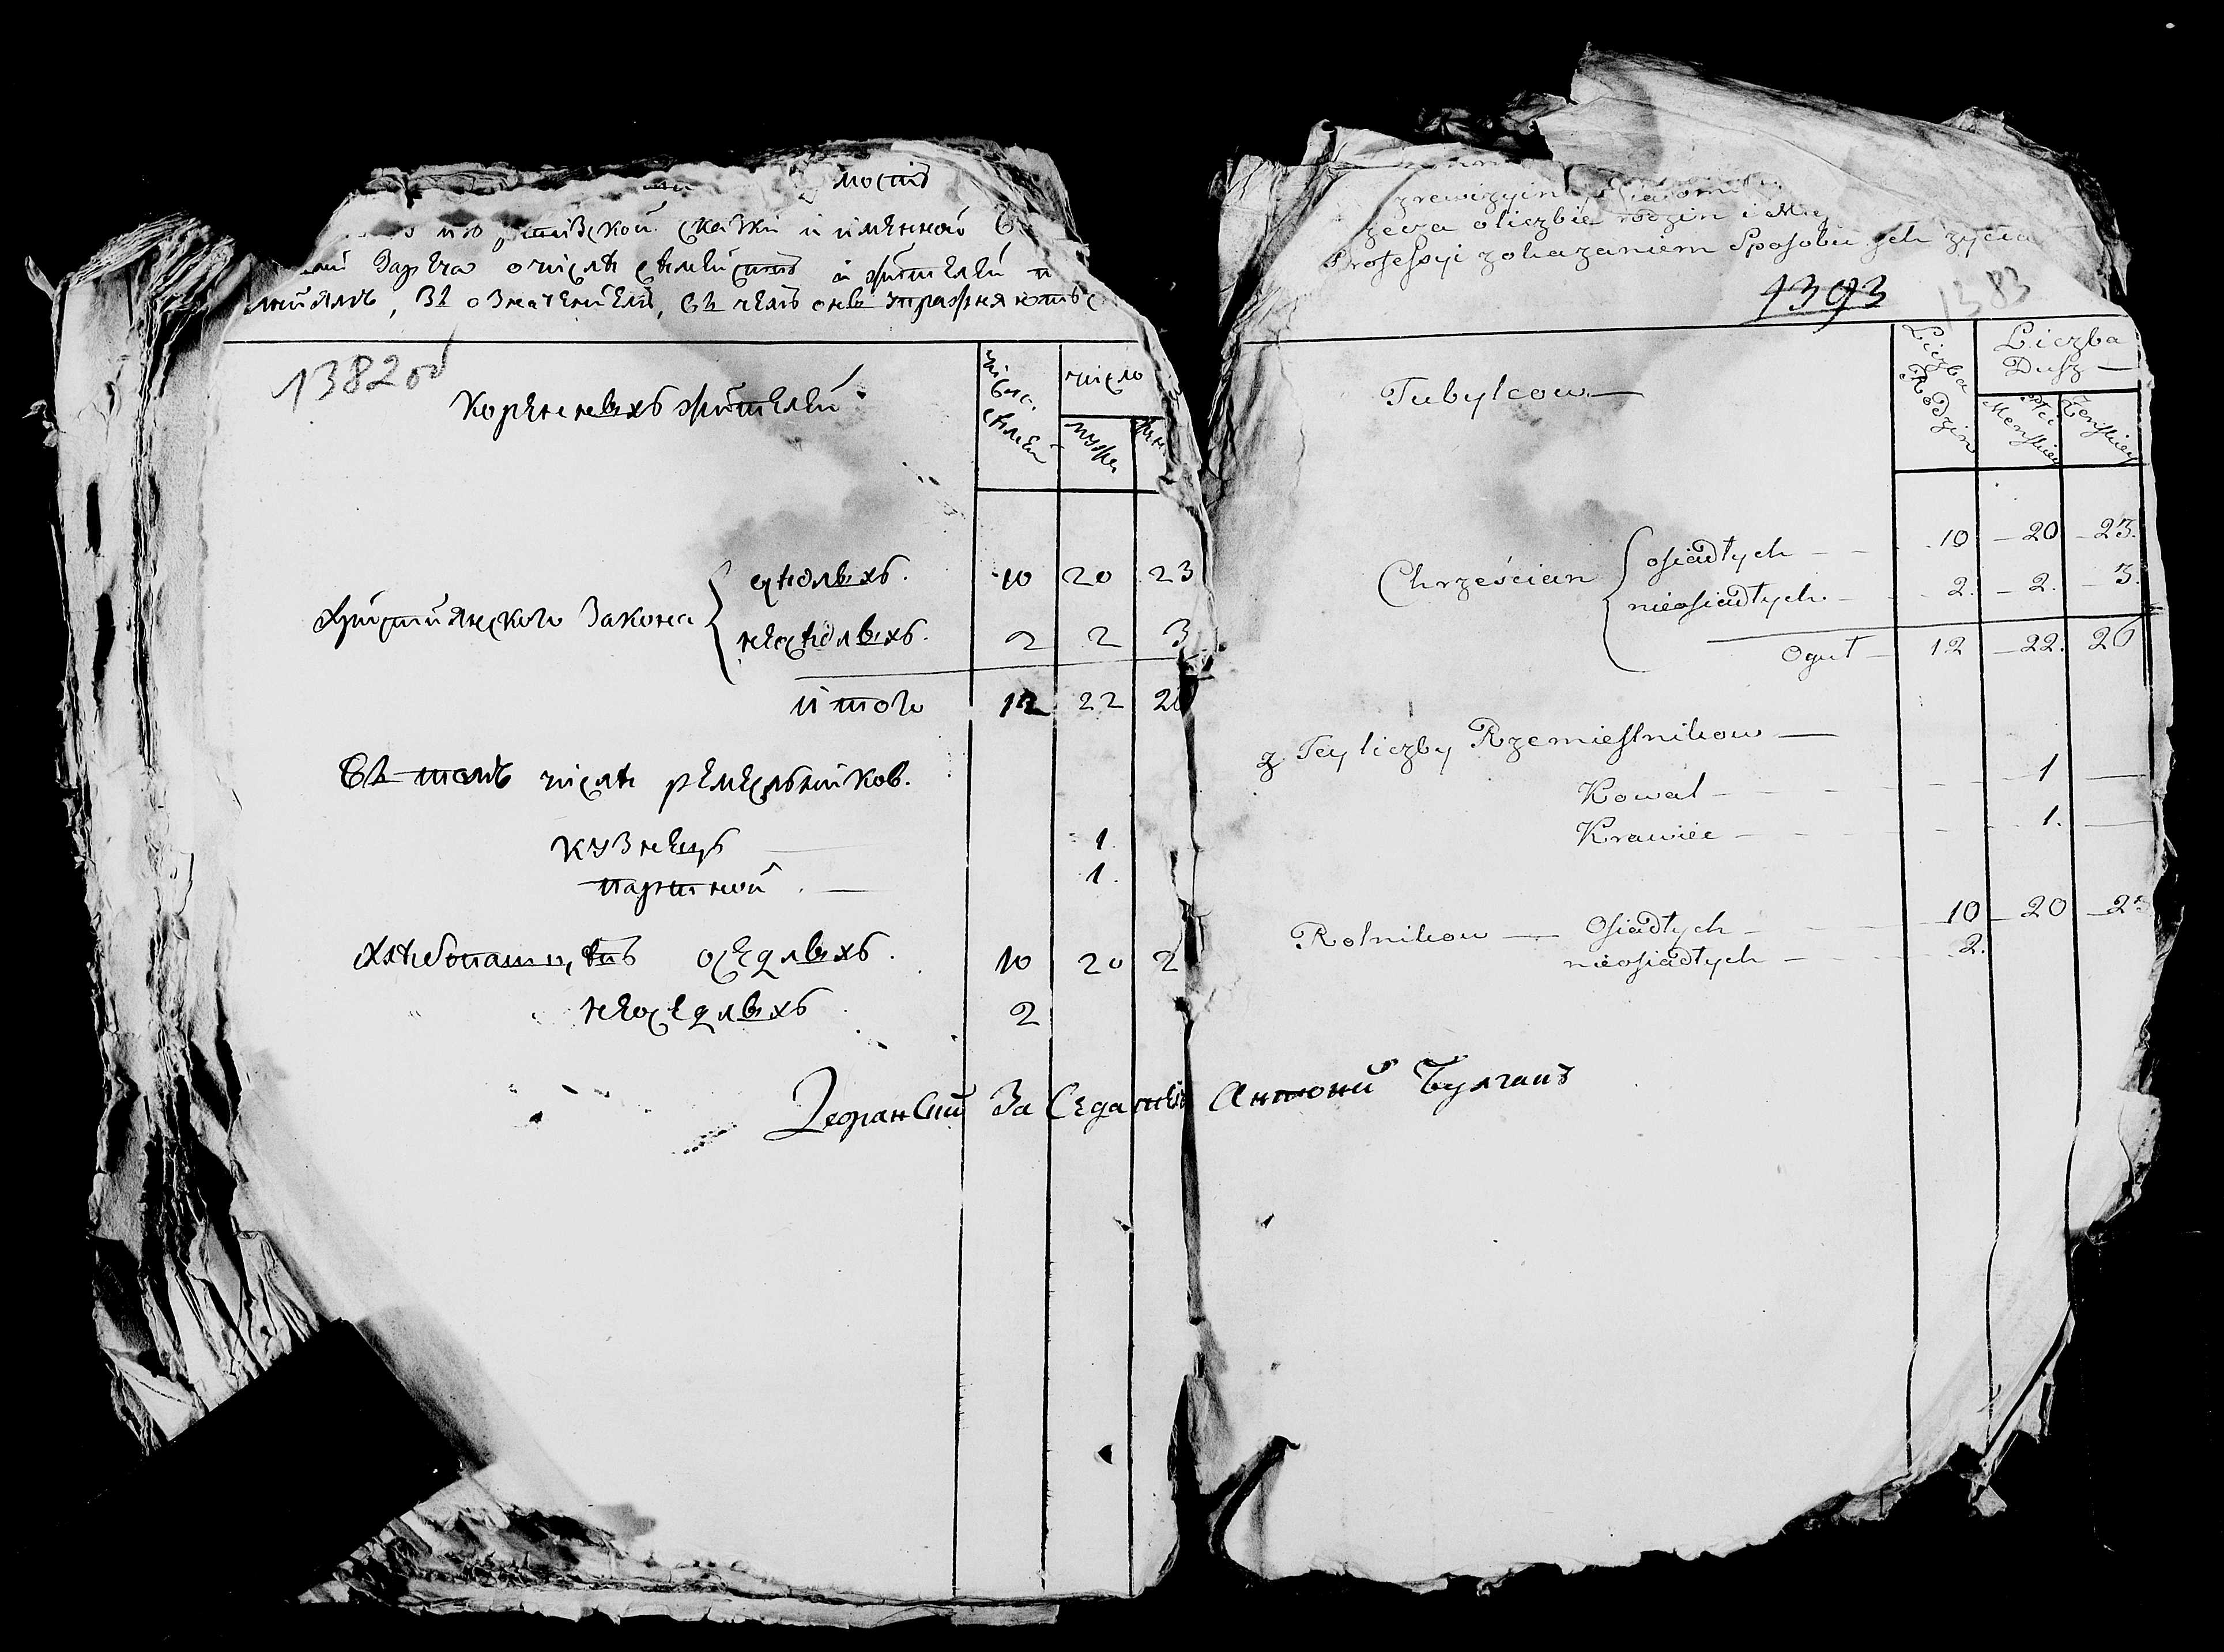 мость
ревизской сказки и имянной
Зарѣча о числѣ сѣмействъ и жителей
съ означениемъ, въ чемъ онѣ упражняютс
1382 об
Коренныхъ жителей
число сѣмей
число
мужес
жен.
християнского закона
сѣдлыхъ. 10 20 23
несѣдлыхъ. 2 2 3
итого 12 22 26
Въ томъ числѣ ремесльников.
кузнецъ 1.
партной 1.
хлѣбопашцовъ оседлыхъ. 10 20 2
неоседлыхъ 2
заседатель Антоний Булгакъ
zrewizyin
rzecza o liczbie rodzin i
Professyi z okazaniem Sposobu ych życia
1393 1383
Tubylcow
Liczba Rodzin
Liczba Dusz
Płci Menskiey
Żenskiey
Chrześcian
osiadłych 10 20 23.
nieosiadłych 2. 2. 3.
Oguł 12 22. 26
z Tey liczby Rzemiesłnikow
Kowal 1
Krawiec 1.
Rolnikow Osiadłych 10 20 2
nieosiadłych 2.